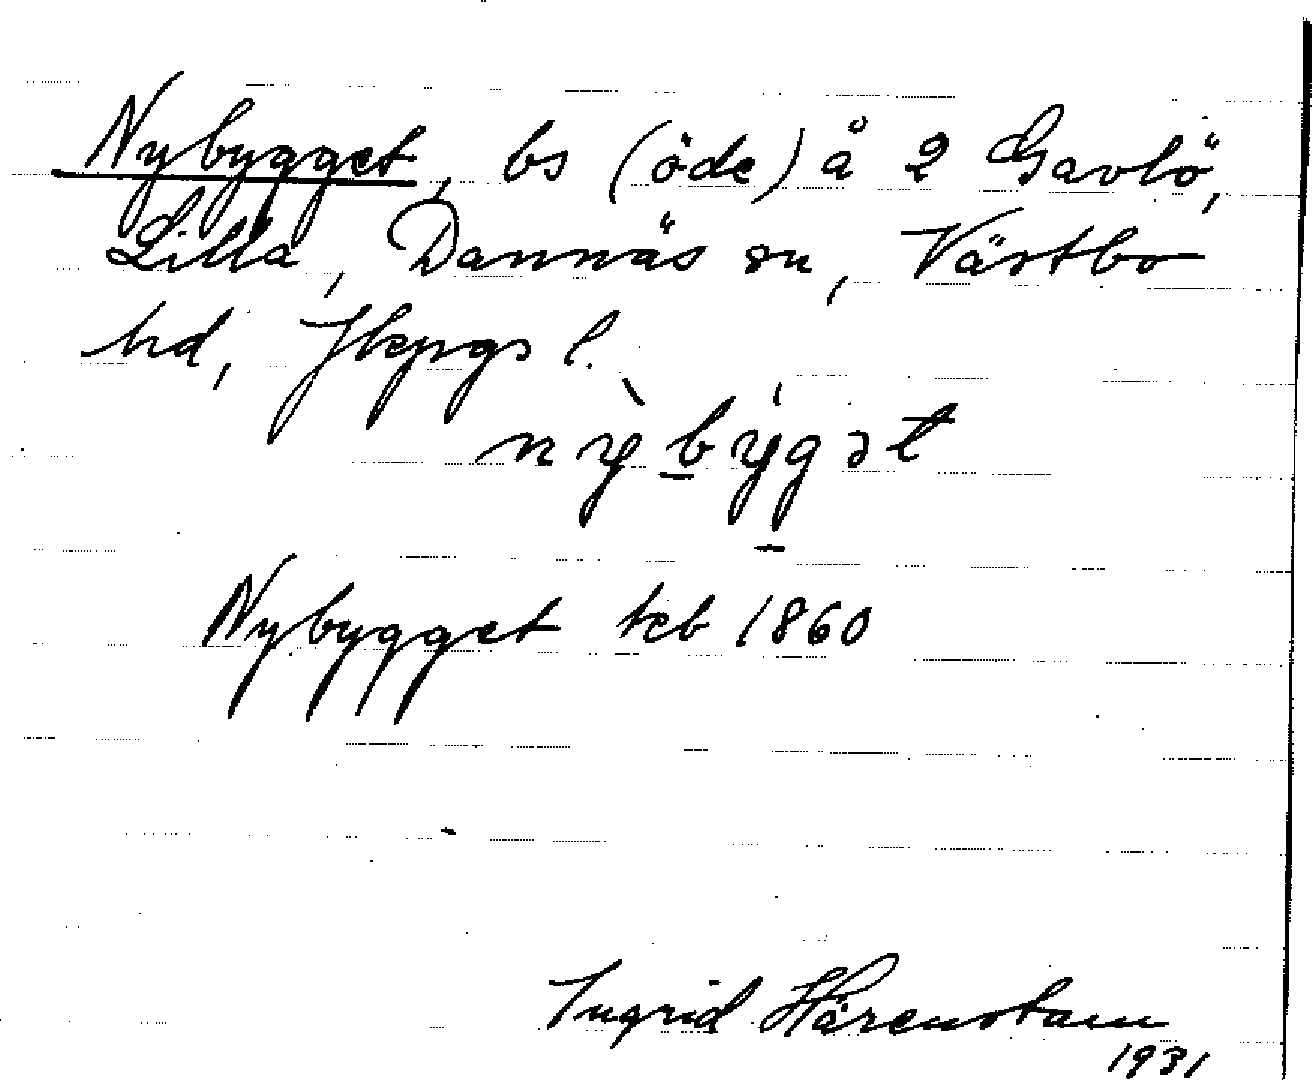 Nybygget, bs (öde) å 2 Gavlö,
Lilla, Dannäs sn, Västbo
hd, Jkpgs l.
ny̆̀by̆́gət
Nybygget tcb 1860
Ingrid Härenstam
1931